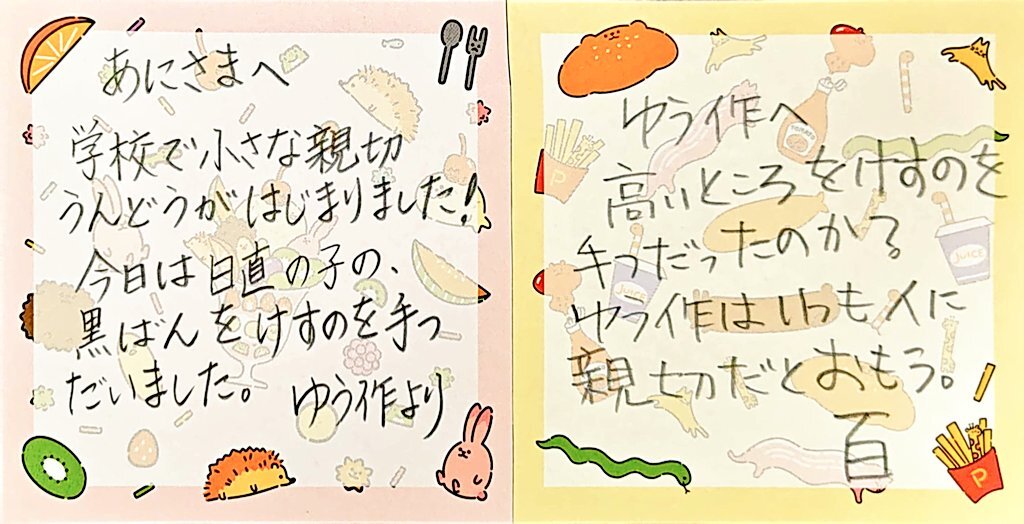 あにさまへ
学校で小さな親切
うんどうがはじまりました!
今日は日直の子の、
黒ばんをけすのを手つ
だいました。
ゆう作より
ゆう作へ
高いところをけすのを
手つだったのか?
ゆう作はいつも人に
親切だとおもう。
百
TOMATO
JUICE
JUICE
P
P